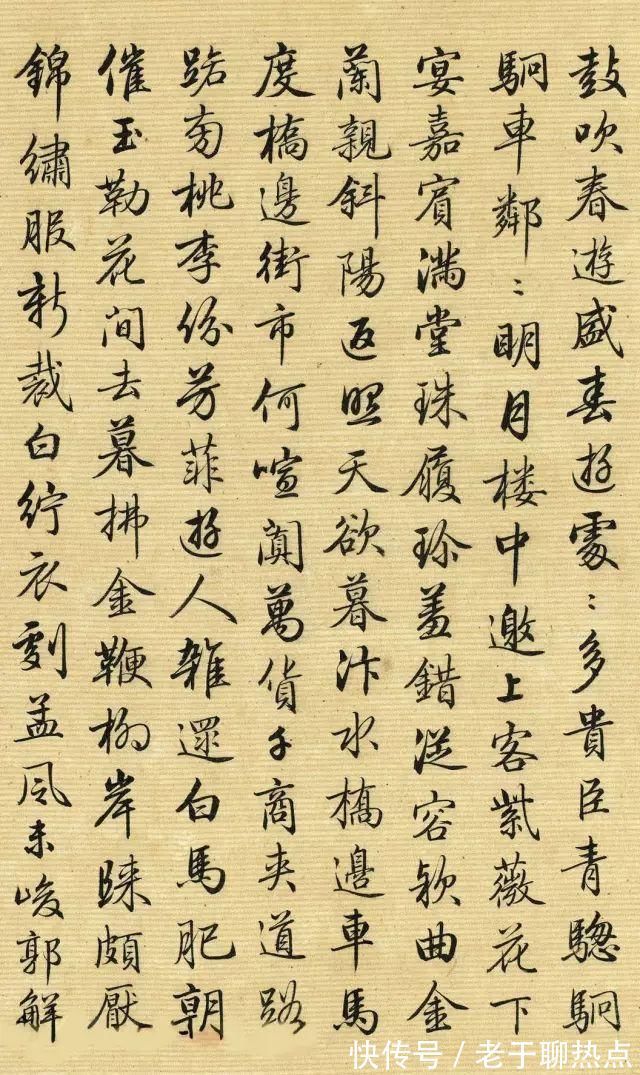 鼓吹春遊盛春遊處〻多貴臣青驄駉
駉車鄰〻明月楼中邀上客紫薇花下
宴嘉賓滿堂珠履珎羞錯從容欵曲金
蘭親斜陽返照天欲暮汴水橋邊車馬
度橋邊街市何喧闐萬貨千商夾道路
路旁桃李份芳菲遊人雜遝白馬肥朝
催玉勒花间去暮拂金鞭柳岸歸頗厭
錦繡服新裁白紵衣劇孟風未峻郭解
快传号/老于聊热点